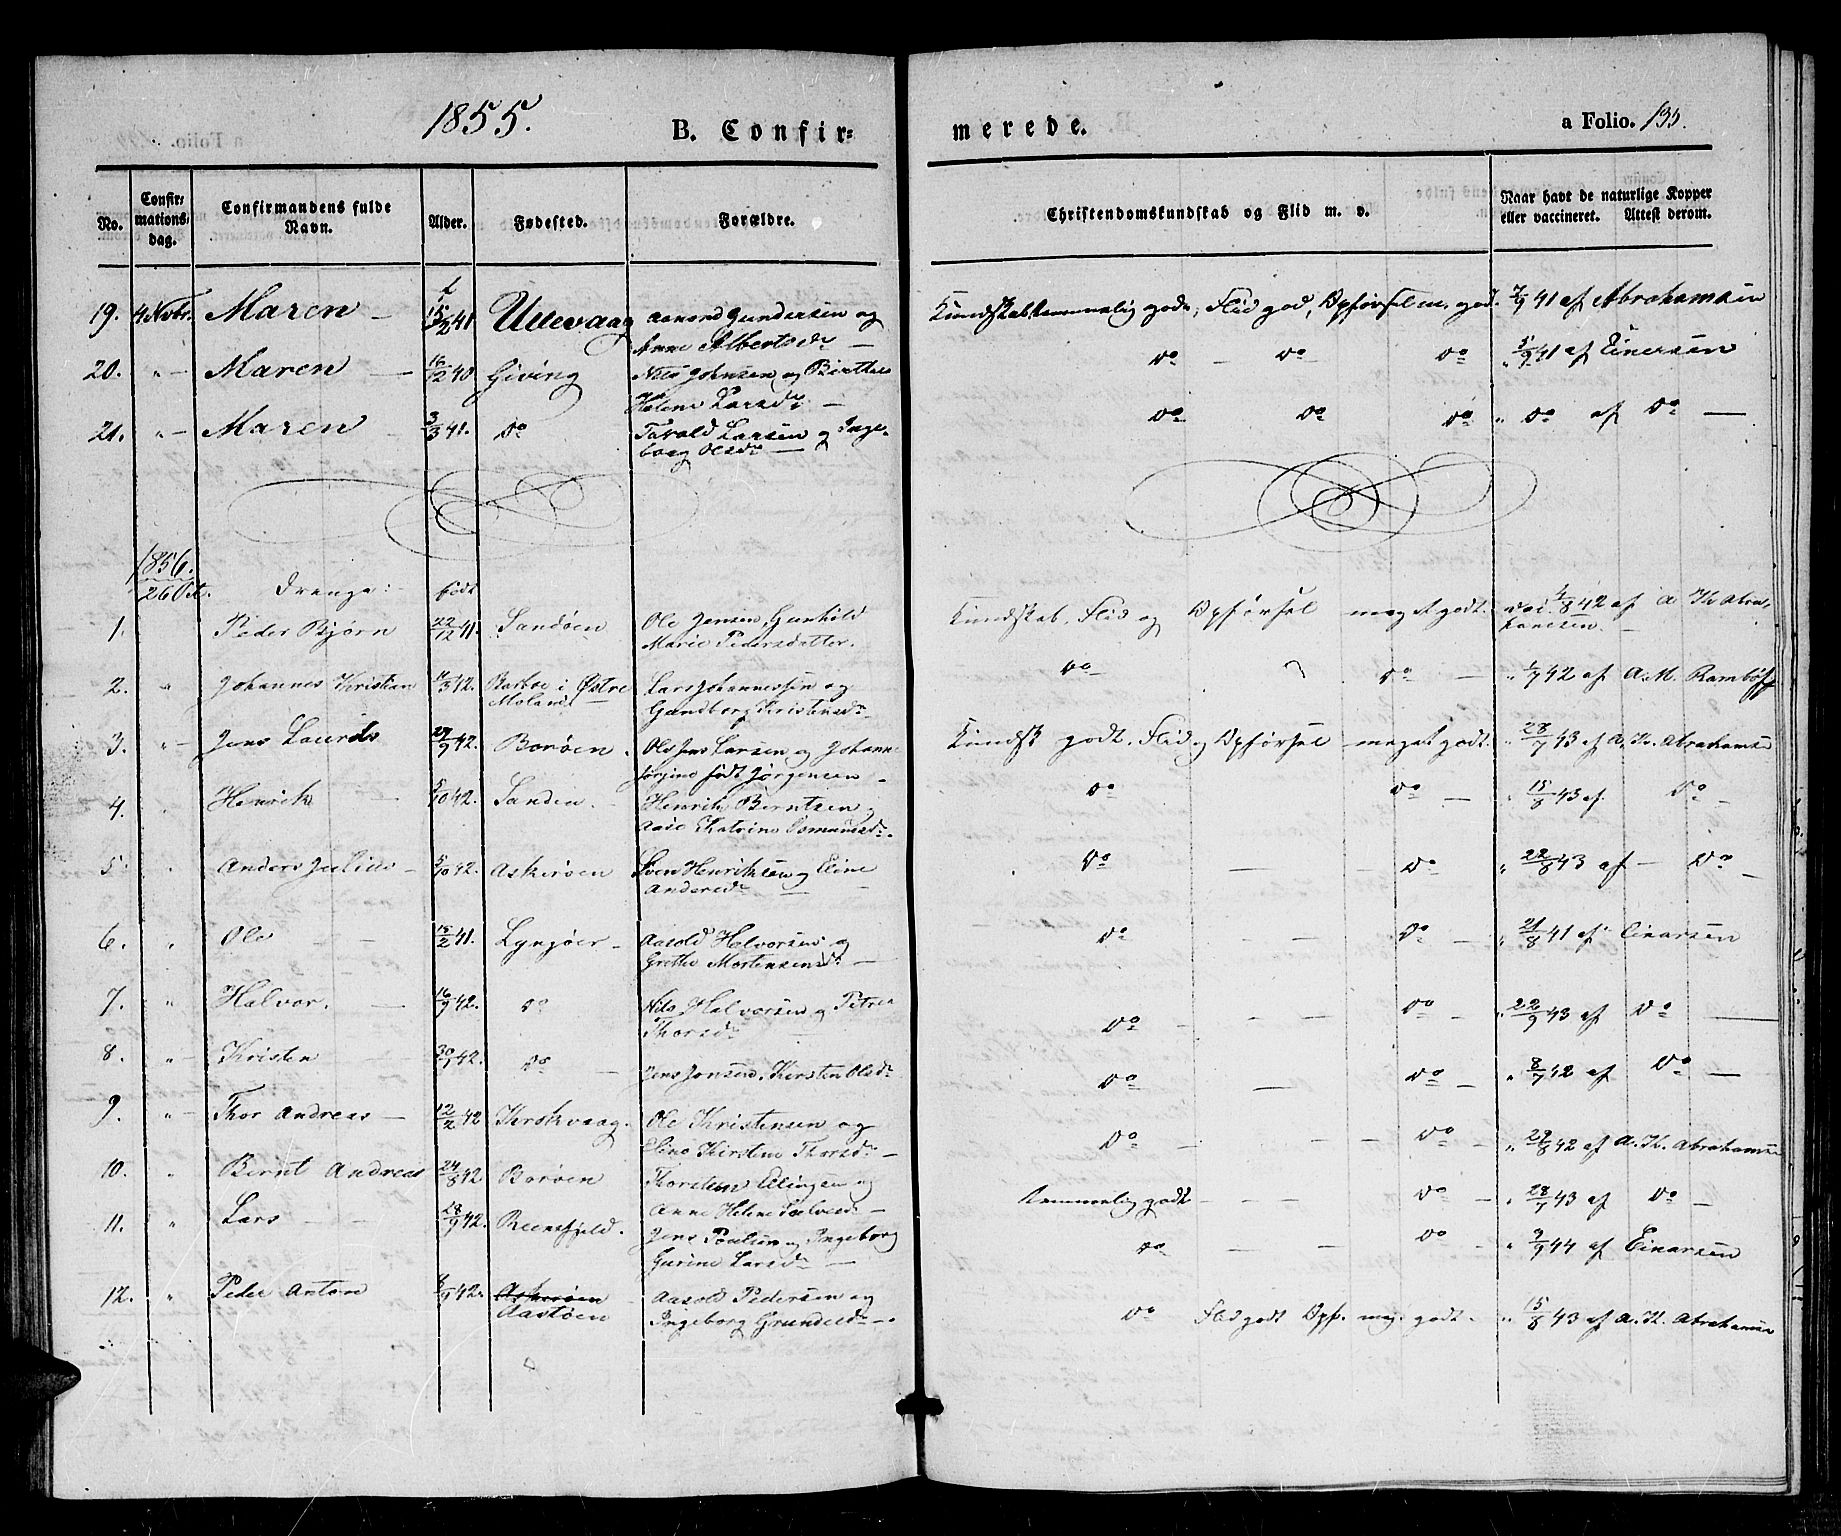 1855.
B. Confir=
merede.
a Folio. 135.
No.
Confir=
mations=
dag.
Confirmandens fulde
Navn.
Alder.
Fødested.
Forældre.
Christendomskundskab og Flid m. v.
Naar havt de naturlige Kopper
eller vaccineret. Attest derom.
19. 4 Novbr. Maren — 15/2 41 Ullevaag Aanond Gundersen og
Anne Albertsdr —
Kundskab temmelig godt, Flid god, Opførsel m. god. 7/9 41 af Abrahamsen
20. " — Maren — 16/12 40 Giving Niels Johnsen og Birthe
Helene Larsdr —
do — do do " 5/9 41 af Einersen
21. " — Maren — 3/3 41. do Tarald Larsen og Inge-
borg Olsdr —
do do do " do af do —
1856.
26 Oct. Drenge: født
1. Peder Bjørn 22/12 41. Sandøen Ole Jensen, Gunhild
Marie Pedersdatter.
Kundskab, Flid og Opførsel meget godt. vac. 1/8 42 af A Th Abra-
hamsen. —
2. " Johannes Kristian 11/3 42. Barboe i Østre
Moland —
Lars Johannessen og
Gundborg Kristensdr.
do do — " 1/7 42 af A.M. Rambøff
3. " — Jens Laurits 29/9 42. Borøen. Ole Jens Larsen og Johanne
Jørgine født Jørgensen —
Kundsk godt. Flid og Opførsel meget godt. " 28/7 43 af A. Th. Abrahamsen
4. " Henrik — 5/10 42. Sanden. Henrik Berntsen og
Aase Katrine Osmundsdr.
do do — " 15/8 43 af. do —
5. " Anders Julius — 5/10 42. Askerøen Sven Henriksen og Eline
Andersdr —
do — — do " 22/8 43 af — do —
6. " Ole — — 15/2 41. Lyngøer — Aasold Halvorsen og
Grethe Mortensensdr —
do — — do — " 21/8 41 af Einarsen
7. " Halvor. — 16/9 42. do Nils Halvorsen og Petrea
Thorsdr
do — — — do — " 22/9 43 af do —
8. " — Kristen — 30/1 42. do — Jens Jonsen, Kirsten Olsdr
do — do — " 8/7 42 af do —
9. " — Thor Andreas — 12/2 42 Krokvaag. Ole Kristensen og
Eline Kirstine Thorsdr —
do — — — do — " 29/8 42 af A. Th. Abrahamsen
10. " Bernt Andreas 24/8 42 Borøen Thorsten Ellingsen og
Anne Helene Salvesdr —
Temmelig godt — — — do — " 28/7 43 af do —
11. " Lars — — 28/9 42. Reensfjeld. Jens Poulsen og Ingeborg
Gurine Larsdr —
do — — do — " 9/9 44 af Einarsen
12. " Peder Anton 8/9 42. Askerøen
Aastøen
Aasold Pedersen og
Ingeborg Gundersdr —
do Flid godt Opf. meg. godt. " 15/8 43 af A. Th. Abrahamsen